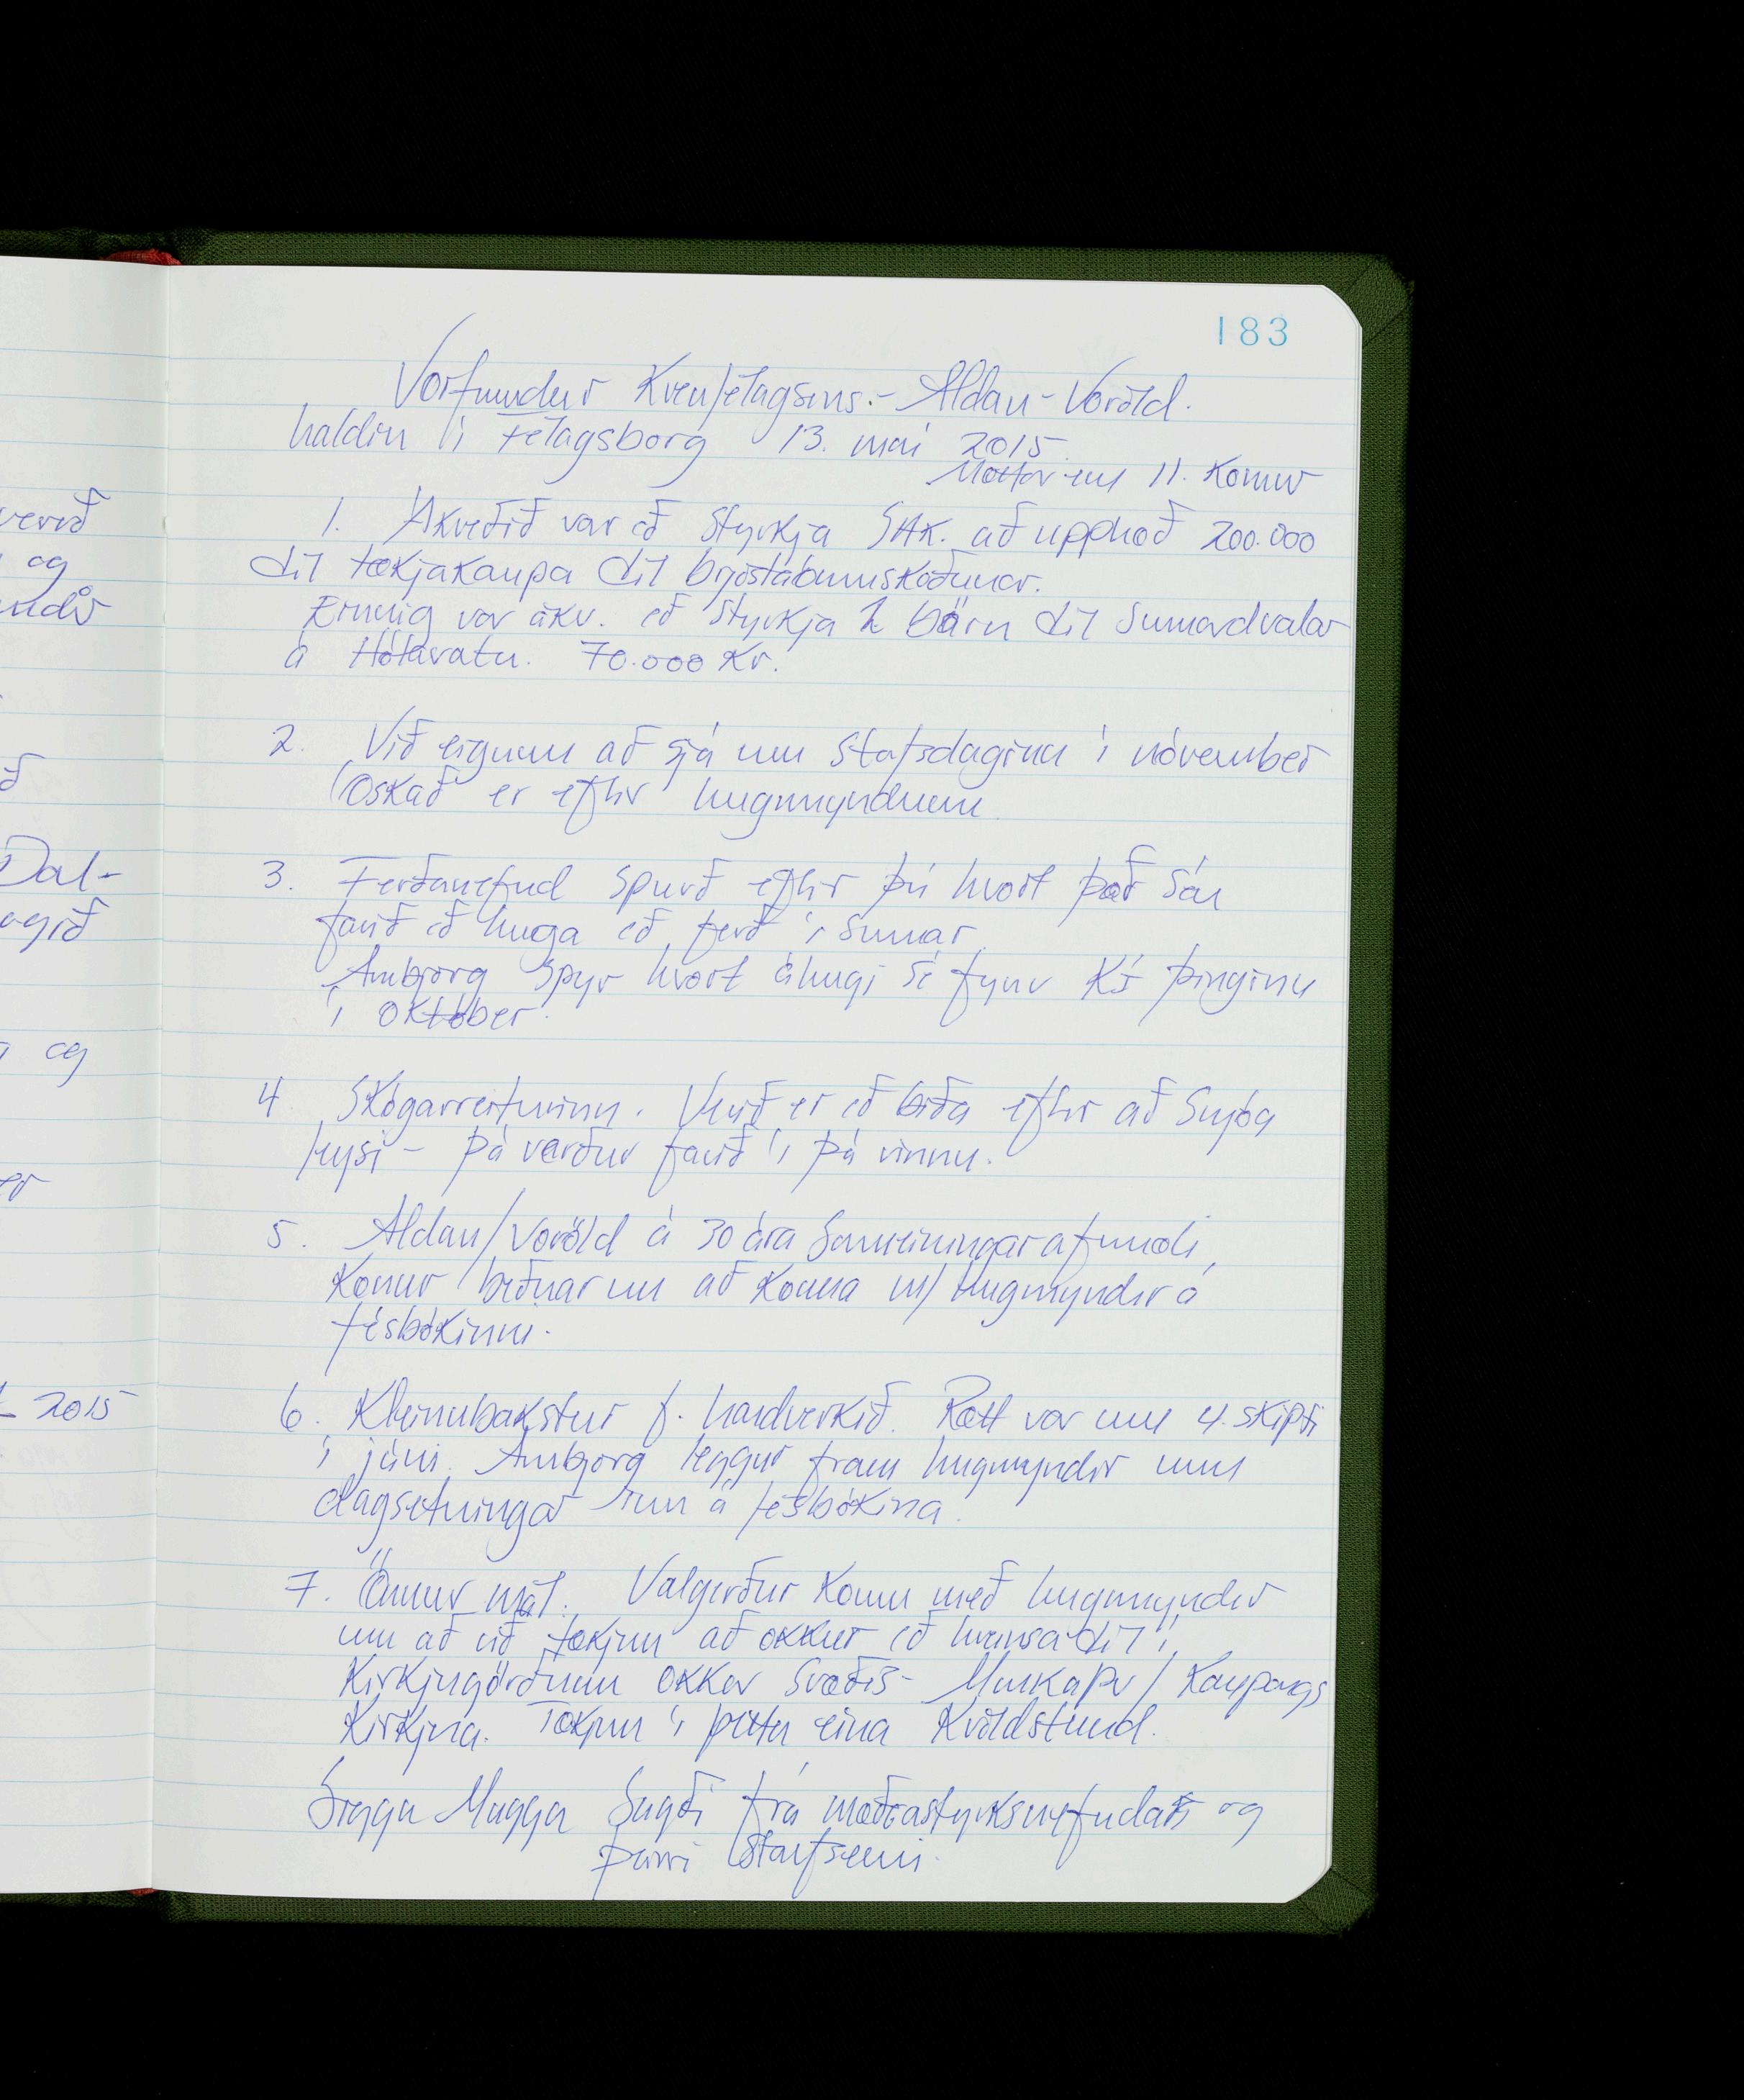 183
Vorfundur Kvenfélagsins.- Aldan-Voröld.
haldin í Félagsborg 13. maí 2015.
Mættar eru 11. Konur
1. Ákveðið var að styrkja SAK. að upphæð 200.000
til tækjakaupa til brjóstabumskoðunar.
Einnig var ákv. að styrkja 2 börn til Sumardvalar
á Hólavatn. 70.000 Kr.
2. Við eigum að sjá um Stafsdaginn í nóvember
Óskað er eftir hugmyndum
3. Ferðanefnd spurð eftir því hvort þær séu
farið að huga að ferð í sumar.
Arnbjörg spyr hvort áhugi sé fyrir KÍ þinginu
í október.
4 Skógarreiturinn. Verið er að bíða eftir að Snjóa
leysi - þá verður farið í þá vinnu.
5. Aldan/Voröld á 30 ára Sameiningarafmæli,
Konur beðnar um að koma m/ hugmyndir á
fésbókinni.
6. Kleinubakstur f. handverkið. Rætt var um 4. skipti
í júní. Arnbjörg leggur fram hugmyndir um
dagsetningar inn á fésbókina.
7. Önnur mál. Valgerður kom með hugmyndir
um að við tækjum að okkur að hreinsa til í
Kirkjugörðum okkar Svæðis- Munkaþv/ Kaupangs
Kirkjna. Tækjum í þetta eina Kvöldstund.
Sigga Magga Sagði frá mæðrastyrksnefndar og
þeirri starfsemi.
verið
og
Dal-
og
2015